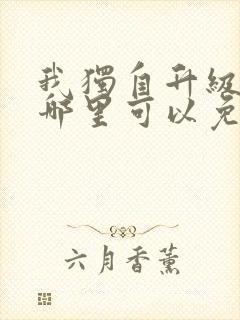 我獨自升級
哪里可以免
六月香薰